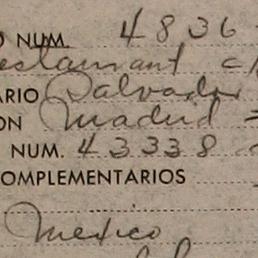 O NUM. 4836
estaurant c
ARIO Salvador
ON Madrid =
NUM. 43338
OMPLEMENTARIOS
Mexico